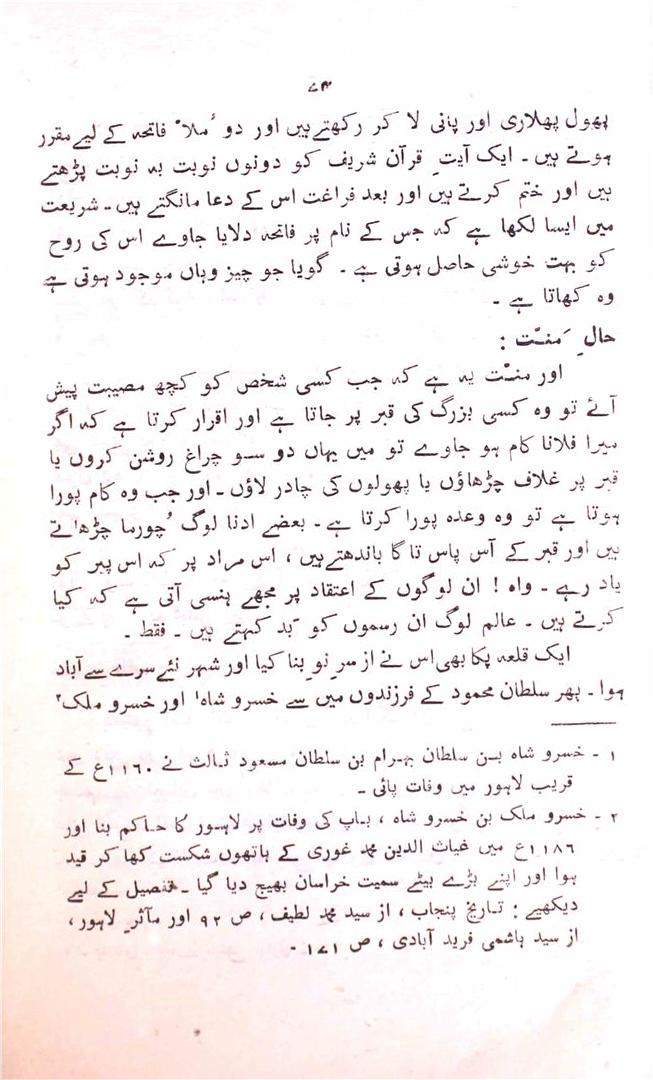 ۷۴
پھول پھلاری اور پانی لا کر رکھتے ہیں اور دو ’ملا‘ فاتحہ کے لیے مقرر
ہوتے ہیں ۔ ایک آیتِ قرآن شریف کو دونوں نوبت بہ نوبت پڑھتے
ہیں اور ختم کرتے ہیں اور بعد فراغت اس کے دعا مانگتے ہیں ۔ شریعت
میں ایسا لکھا ہے کہ جس کے نام پر فاتحہ دلایا جاوے اس کی روح
کو بہت خوشی حاصل ہوتی ہے ۔ گویا جو چیز وہاں موجود ہوتی ہے
وہ کھاتا ہے ۔
حالِ مَنّت :
اور منّت یہ ہے کہ جب کسی شخص کو کچھ مصیبت پیش
آئے تو وہ کسی بزرگ کی قبر پر جاتا ہے اور اقرار کرتا ہے کہ اگر
میرا فلانا کام ہو جاوے تو میں یہاں دو سو چراغ روشن کروں یا
قبر پر غلاف چڑھاؤں یا پھولوں کی چادر لاؤں ۔ اور جب وہ کام پورا
ہوتا ہے تو وہ وعدہ پورا کرتا ہے ۔ بعضے ادنا لوگ چُورما چڑھاتے
ہیں اور قبر کے آس پاس تاگا باندھتے ہیں ، اس مراد پر کہ اس پیر کو
یاد رہے ۔ واہ ! ان لوگوں کے اعتقاد پر مجھے ہنسی آتی ہے کہ کیا
کرتے ہیں ۔ عالم لوگ ان رسموں کو بَد کہتے ہیں ۔ فقط ۔
ایک قلعہ پکا بھی اس نے از سرِ نو بنا کیا اور شہر نئے سرے سے آباد
ہوا ۔ پھر سلطان محمود کے فرزندوں میں سے خسرو شاہ۱ اور خسرو ملک۲
۱ ۔ خسرو شاہ بن سلطان بہرام بن سلطان مسعود ثالث نے ۱۱۶۰ع کے
قریب لاہور میں وفات پائی ۔
۲ ۔ خسرو ملک بن خسرو شاہ ، باپ کی وفات پر لاہور کا حاکم بنا اور
۱۱۸۶ع میں غیاث الدین محمد غوری کے ہاتھوں شکست کھا کر قید
ہوا اور اپنے بڑے بیٹے سمیت خراسان بھیج دیا گیا ۔ تفصیل کے لیے
دیکھیے : تاریخ پنجاب ، از سید محمد لطیف ، ص ۹۲ اور مآثرِ لاہور ،
از سید ہاشمی فرید آبادی ، ص ۱۷۱ ۔